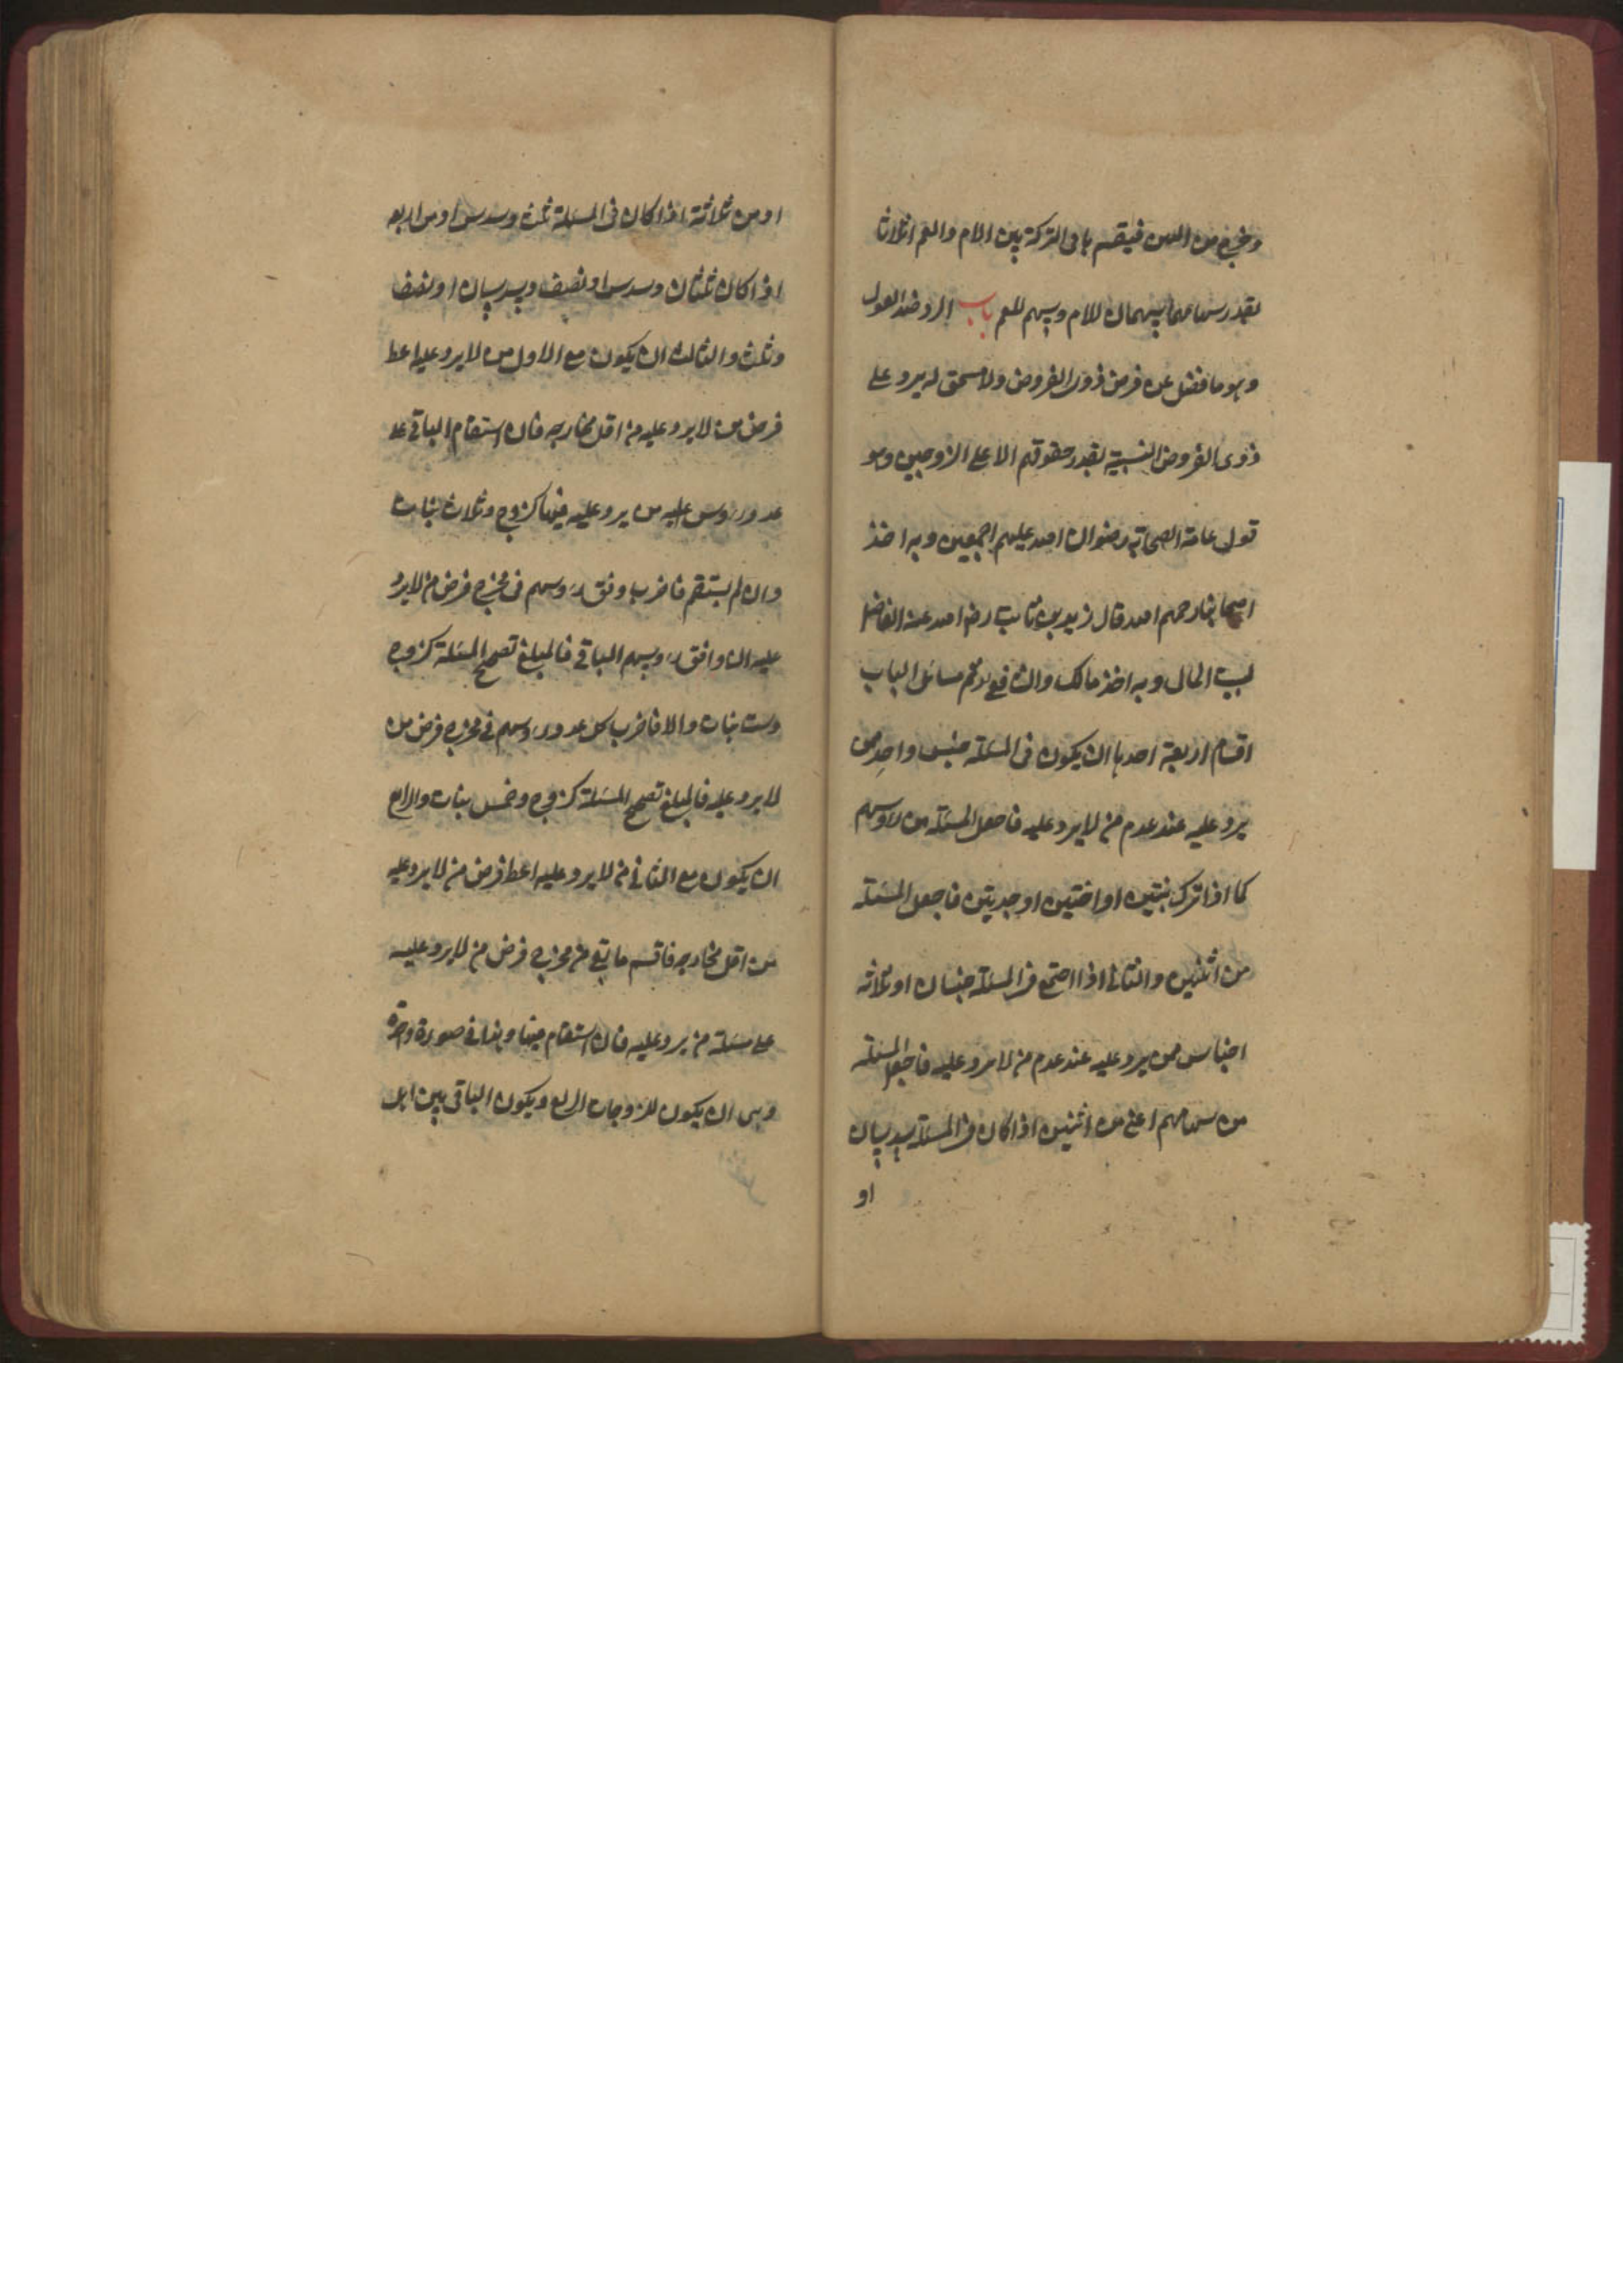 وخرج من البين فيقسم باقى التركة بين الام والعم اثلاثا
بقدر سهامهما سهمان للام وسهم للعم باب الرد ضد العول
وهو ما فضل عن فرض ذوى الفروض ولا مستحق له يرد على
ذوى الفروض النسبية بقدر حقوقهم الا على الزوجين وهو
قول عامة الصحابة رضوان الله عليهم اجمعين وبه اخذ
اصحابنا رحمهم الله وقال زيد بن ثابت رضى الله عنه الفاضل
لبيت المال وبه اخذ مالك والشافعى ثم مسائل الباب
اقسام اربعة احدها ان يكون فى المسئلة جنس واحد ممن
يرد عليه عند عدم من لا يرد عليه فاجعل المسئلة من رؤسهم
كما اذا ترك بنتين او اختين او جدتين فاجعل المسئلة
من اثنين والثانى اذا اجتمع فى المسئلة جنسان او ثلاثة
اجناس ممن يرد عليه عند عدم من لا يرد عليه فاجعل المسئلة
من سهامهم اعنى من اثنين اذا كان فى المسئلة سدسان
او
او من ثلاثة اذا كان فى المسئلة ثلث وسدس او من اربعة
اذا كان ثلثان وسدس او نصف وسدسان او نصف
وثلث والثالث ان يكون مع الاول من لا يرد عليه اعط
فرض من لا يرد عليه من اقل مخارجه فان استقام الباقى على
عدد رؤس من يرد عليه فبها كزوج وثلاث بنات
وان لم يستقم فاضرب وفق رؤسهم فى مخرج فرض من لا يرد
عليه ان وافق رؤسهم الباقى فالمبلغ تصحيح المسئلة كزوج
وست بنات والا فاضرب كل عدد رؤسهم فى مخرج فرض من
لا يرد عليه فالمبلغ تصحيح المسئلة كزوج وخمس بنات والرابع
ان يكون مع الثانى من لا يرد عليه اعط فرض من لا يرد عليه
من اقل مخارجه فاقسم ما بقى من مخرج فرض من لا يرد عليه
على مسئلة من يرد عليه فان استقام فبها وهذا فى صورة واحدة
وهى ان يكون للزوجات الربع ويكون الباقى بين اهل